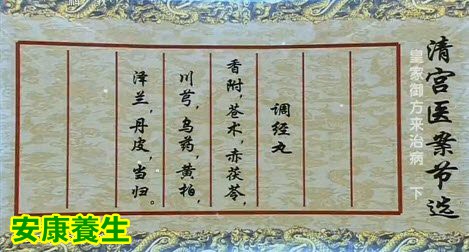 清宫医案节选
皇家御方来治病 下
调经丸
香附，苍术，赤茯苓，
川芎，乌药，黄柏，
泽兰，丹皮，当归。
安康養生